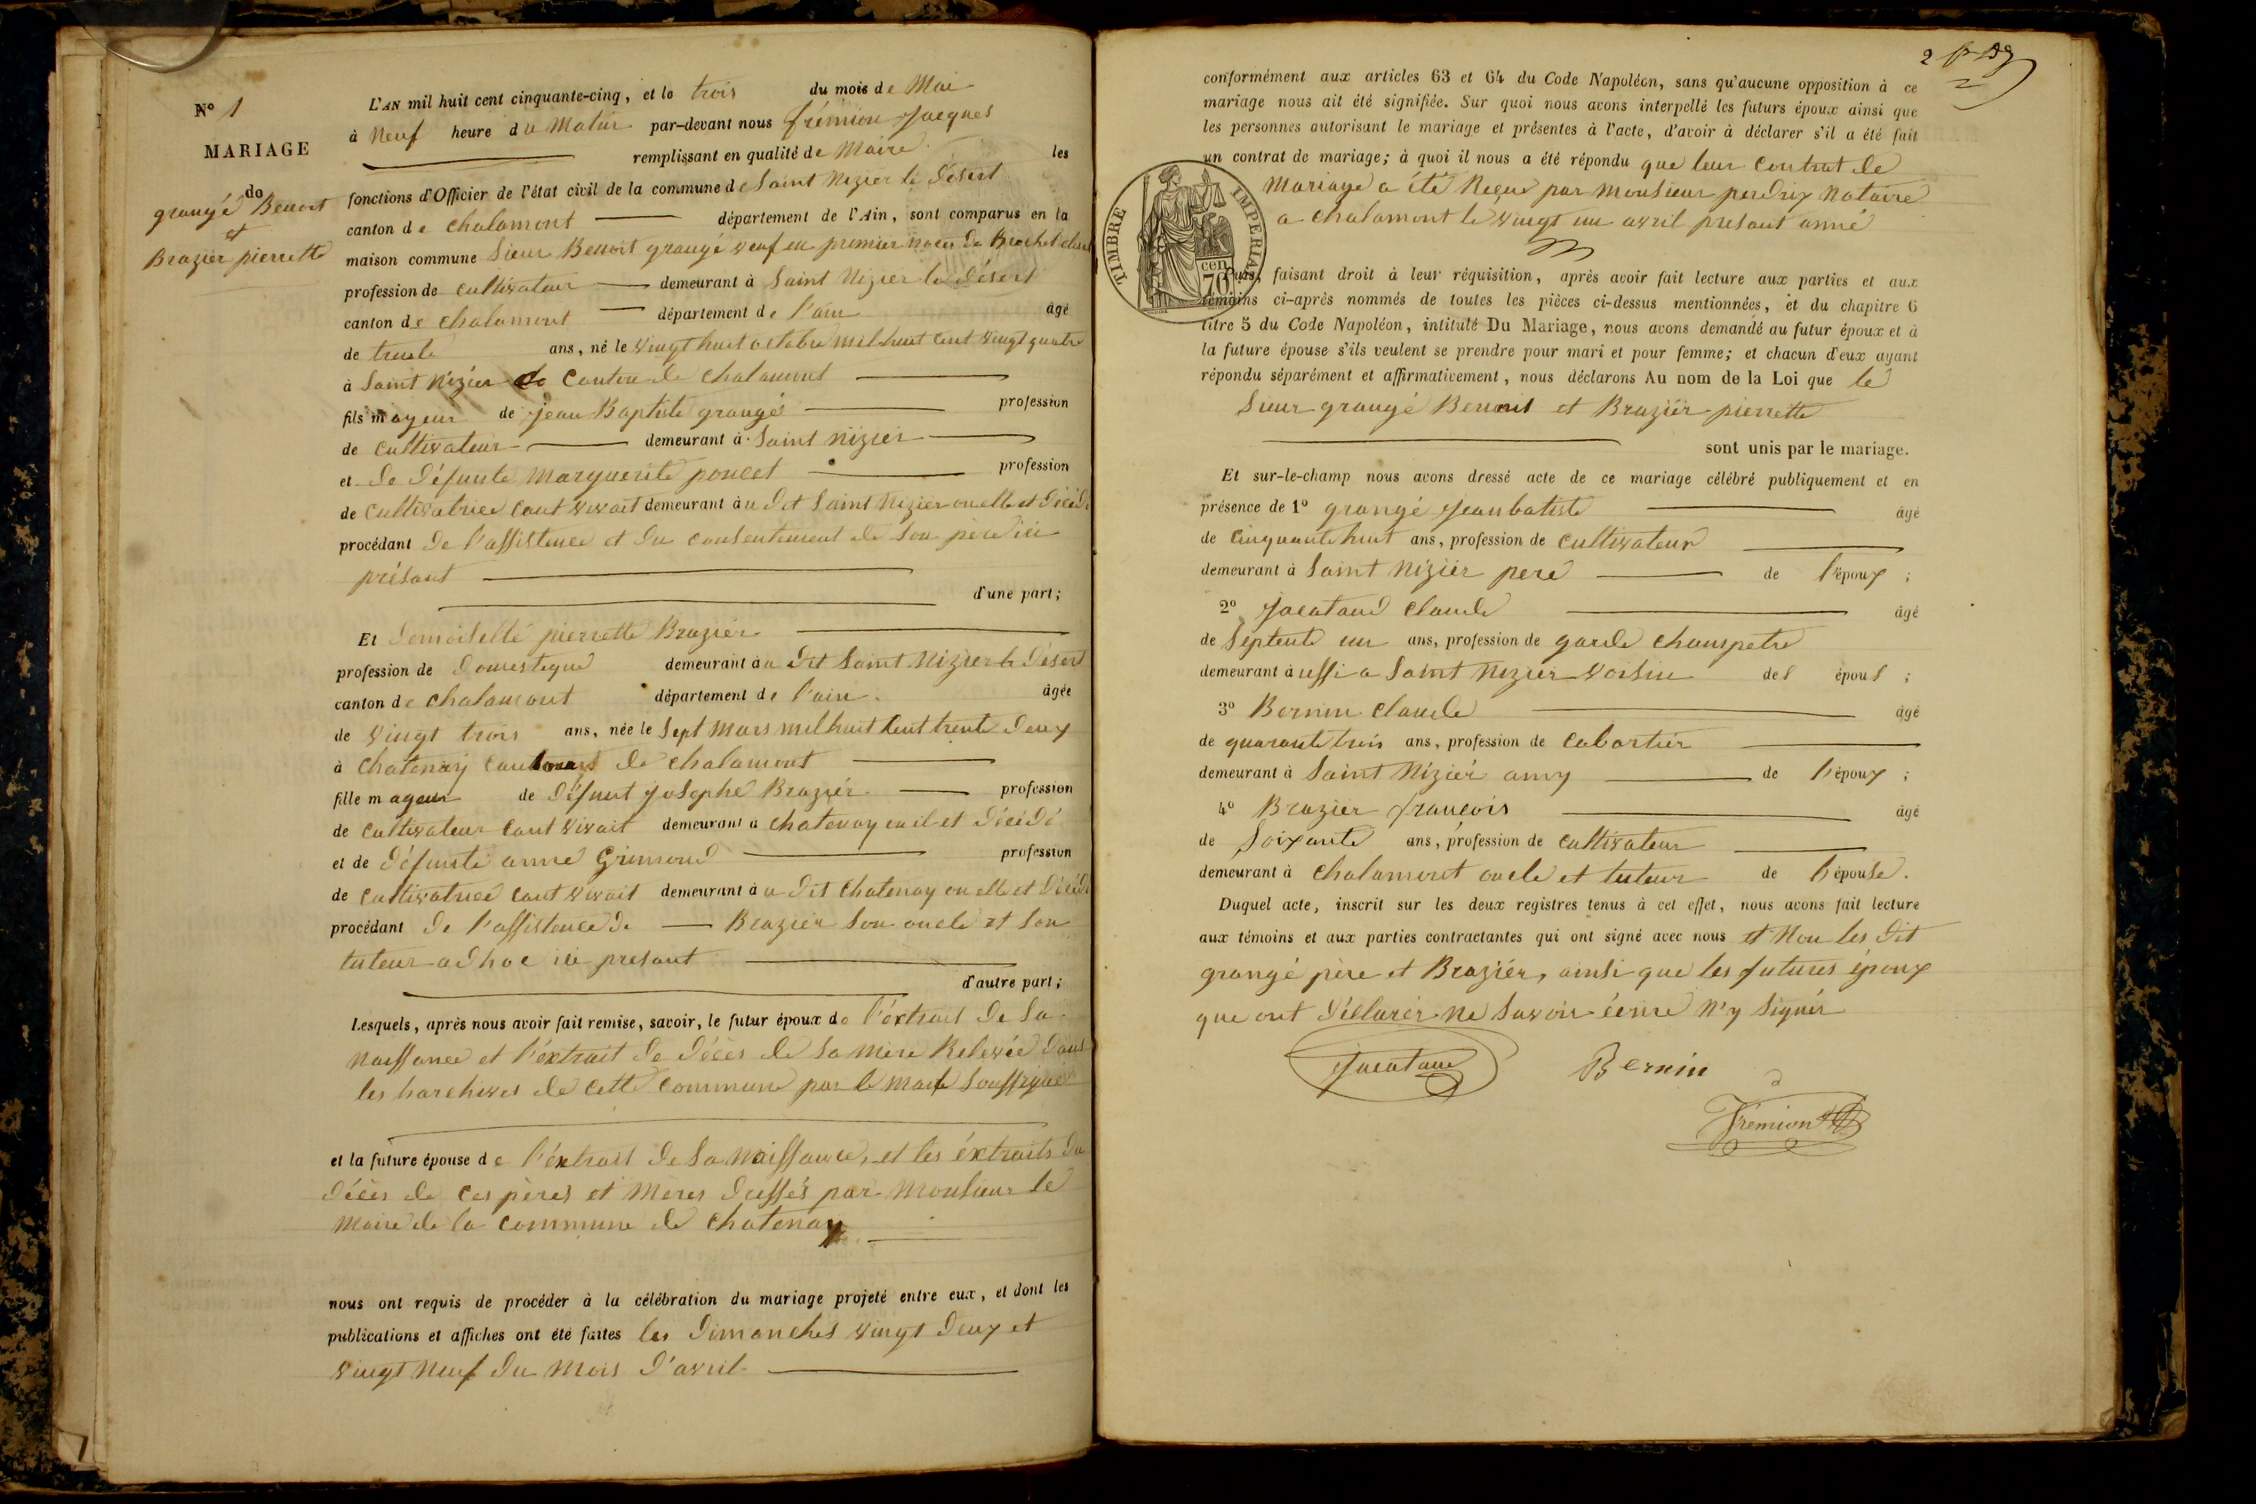 N° 1
MARIAGE
de
grangé Benoit
et
Brazier pierrette
L'AN mil huit cent cinquante-cinq, et le trois du mois de Mai
à Neuf heure du Matin par-devant nous frémion Jacques
remplissant en qualité de Maire les
fonctions d'Officier de l'état civil de la commune de Saint Nizier le Désert
canton de chalamont département de l'Ain, sont comparus en la
maison commune Sieur Benoit grangé veuf en premier noces de Brochet
profession de cultivateur demeurant à Saint Nizier le Désert
canton de chalamont département de l'ain âgé
de trente ans, né le vingt huit octobre mil huit cent vingt quatre
à Saint Nizier canton de chalamont
fils mayeur de jean Baptiste grangé profession
de cultivateur demeurant à Saint Nizier
et de Défunte Marguerite poncet profession
de cultivatrice cant vivait demeurant au Dit Saint Nizier ou elle et Décédé
procédant de l'assistence et du consentement de son père ici
présant
d'une part;
Et Demoiselle pierrette Brazier
profession de Domestique demeurant au Dit Saint Nizier le Désert
canton de chalamont département de l'ain. âgée
de vingt trois ans, née le Sept Mars mil huit cent trente Deux
à Chatenay de chalamont
fille mageur de Défunt josephe Brazier profession
de cultivateur cant vivait demeurant a chatenay ou il et Décédé
et de défunte anne Grimond profession
de cultivatrice cant vivait demeurant à u Dit Chatenay ou elle et Décédé
procédant de l'assistence de Brazier Son oncle et Son
tuteur ad hoc ici presant
d'autre part;
Lesquels, après nous avoir fait remise, savoir, le futur époux de l'éxtrait de Sa
Naissance et l'éxtrait de Décès de Sa Mère Relevée Dans
les harchives de cette commune par le Maire Soussigné
et la future épouse de l'éxtrait de Sa Naissance, et les éxtraits du
Décès de ces pères et Mères Dressés par Monsieur le
Maire de la commune de Chatenay
nous ont requis de procéder à la célébration du mariage projeté entre eux, et dont les
publications et affiches ont été faites les Dimanches vingt Deux et
vingt Neuf Du Mois D'avril
2
conformément aux articles 63 et 64 du Code Napoléon, sans qu'aucune opposition à ce
mariage nous ait été signifiée. Sur quoi nous avons interpellé les futurs époux ainsi que
les personnes autorisant le mariage et présentes à l'acte, d'avoir à déclarer s'il a été fait
un contrat de mariage; à quoi il nous a été répondu que leur contrat de
Mariage a été Reçue par Monsieur perdrix Notaire
a chalamont le vingt un avril presant anné
TIMBRE IMPERIAL
70 cen
Puis, faisant droit à leur réquisition, après avoir fait lecture aux parties et aux
témoins ci-après nommés de toutes les pièces ci-dessus mentionnées, et du chapitre 6
titre 5 du Code Napoléon, intitulé Du Mariage, nous avons demandé au futur époux et à
la future épouse s'ils veulent se prendre pour mari et pour femme; et chacun d'eux ayant
répondu séparément et affirmativement, nous déclarons Au nom de la Loi que le
Sieur grangé Benoit et Brazier pierrette
sont unis par le mariage.
Et sur-le-champ nous avons dressé acte de ce mariage célébré publiquement et en
présence de 1° grangé Jeanbatiste âgé
de Cinquante huit ans, profession de Cultivateur
demeurant à Saint Nizier pere de l'époux;
2° Jacataud Claude âgé
de Septente un ans, profession de garde champetre
demeurant aussi a Saint Nizier voisin des épous;
3° Bernin Claude âgé
de quarante trois ans, profession de Cabartier
demeurant à Saint Nizier amy de l'époux;
4° Brazier françois âgé
de Soixante ans, profession de cultivateur
demeurant à chalamont oncle et tuteur de l'épouse.
Duquel acte, inscrit sur les deux registres tenus à cet effet, nous avons fait lecture
aux témoins et aux parties contractantes qui ont signé avec nous et Non les Dit
grangé père et Brazier, ainsi que les futures époux
que ont Déclarer Ne Savoir écrire N'y Signér
Jacataud Bernin
frémion